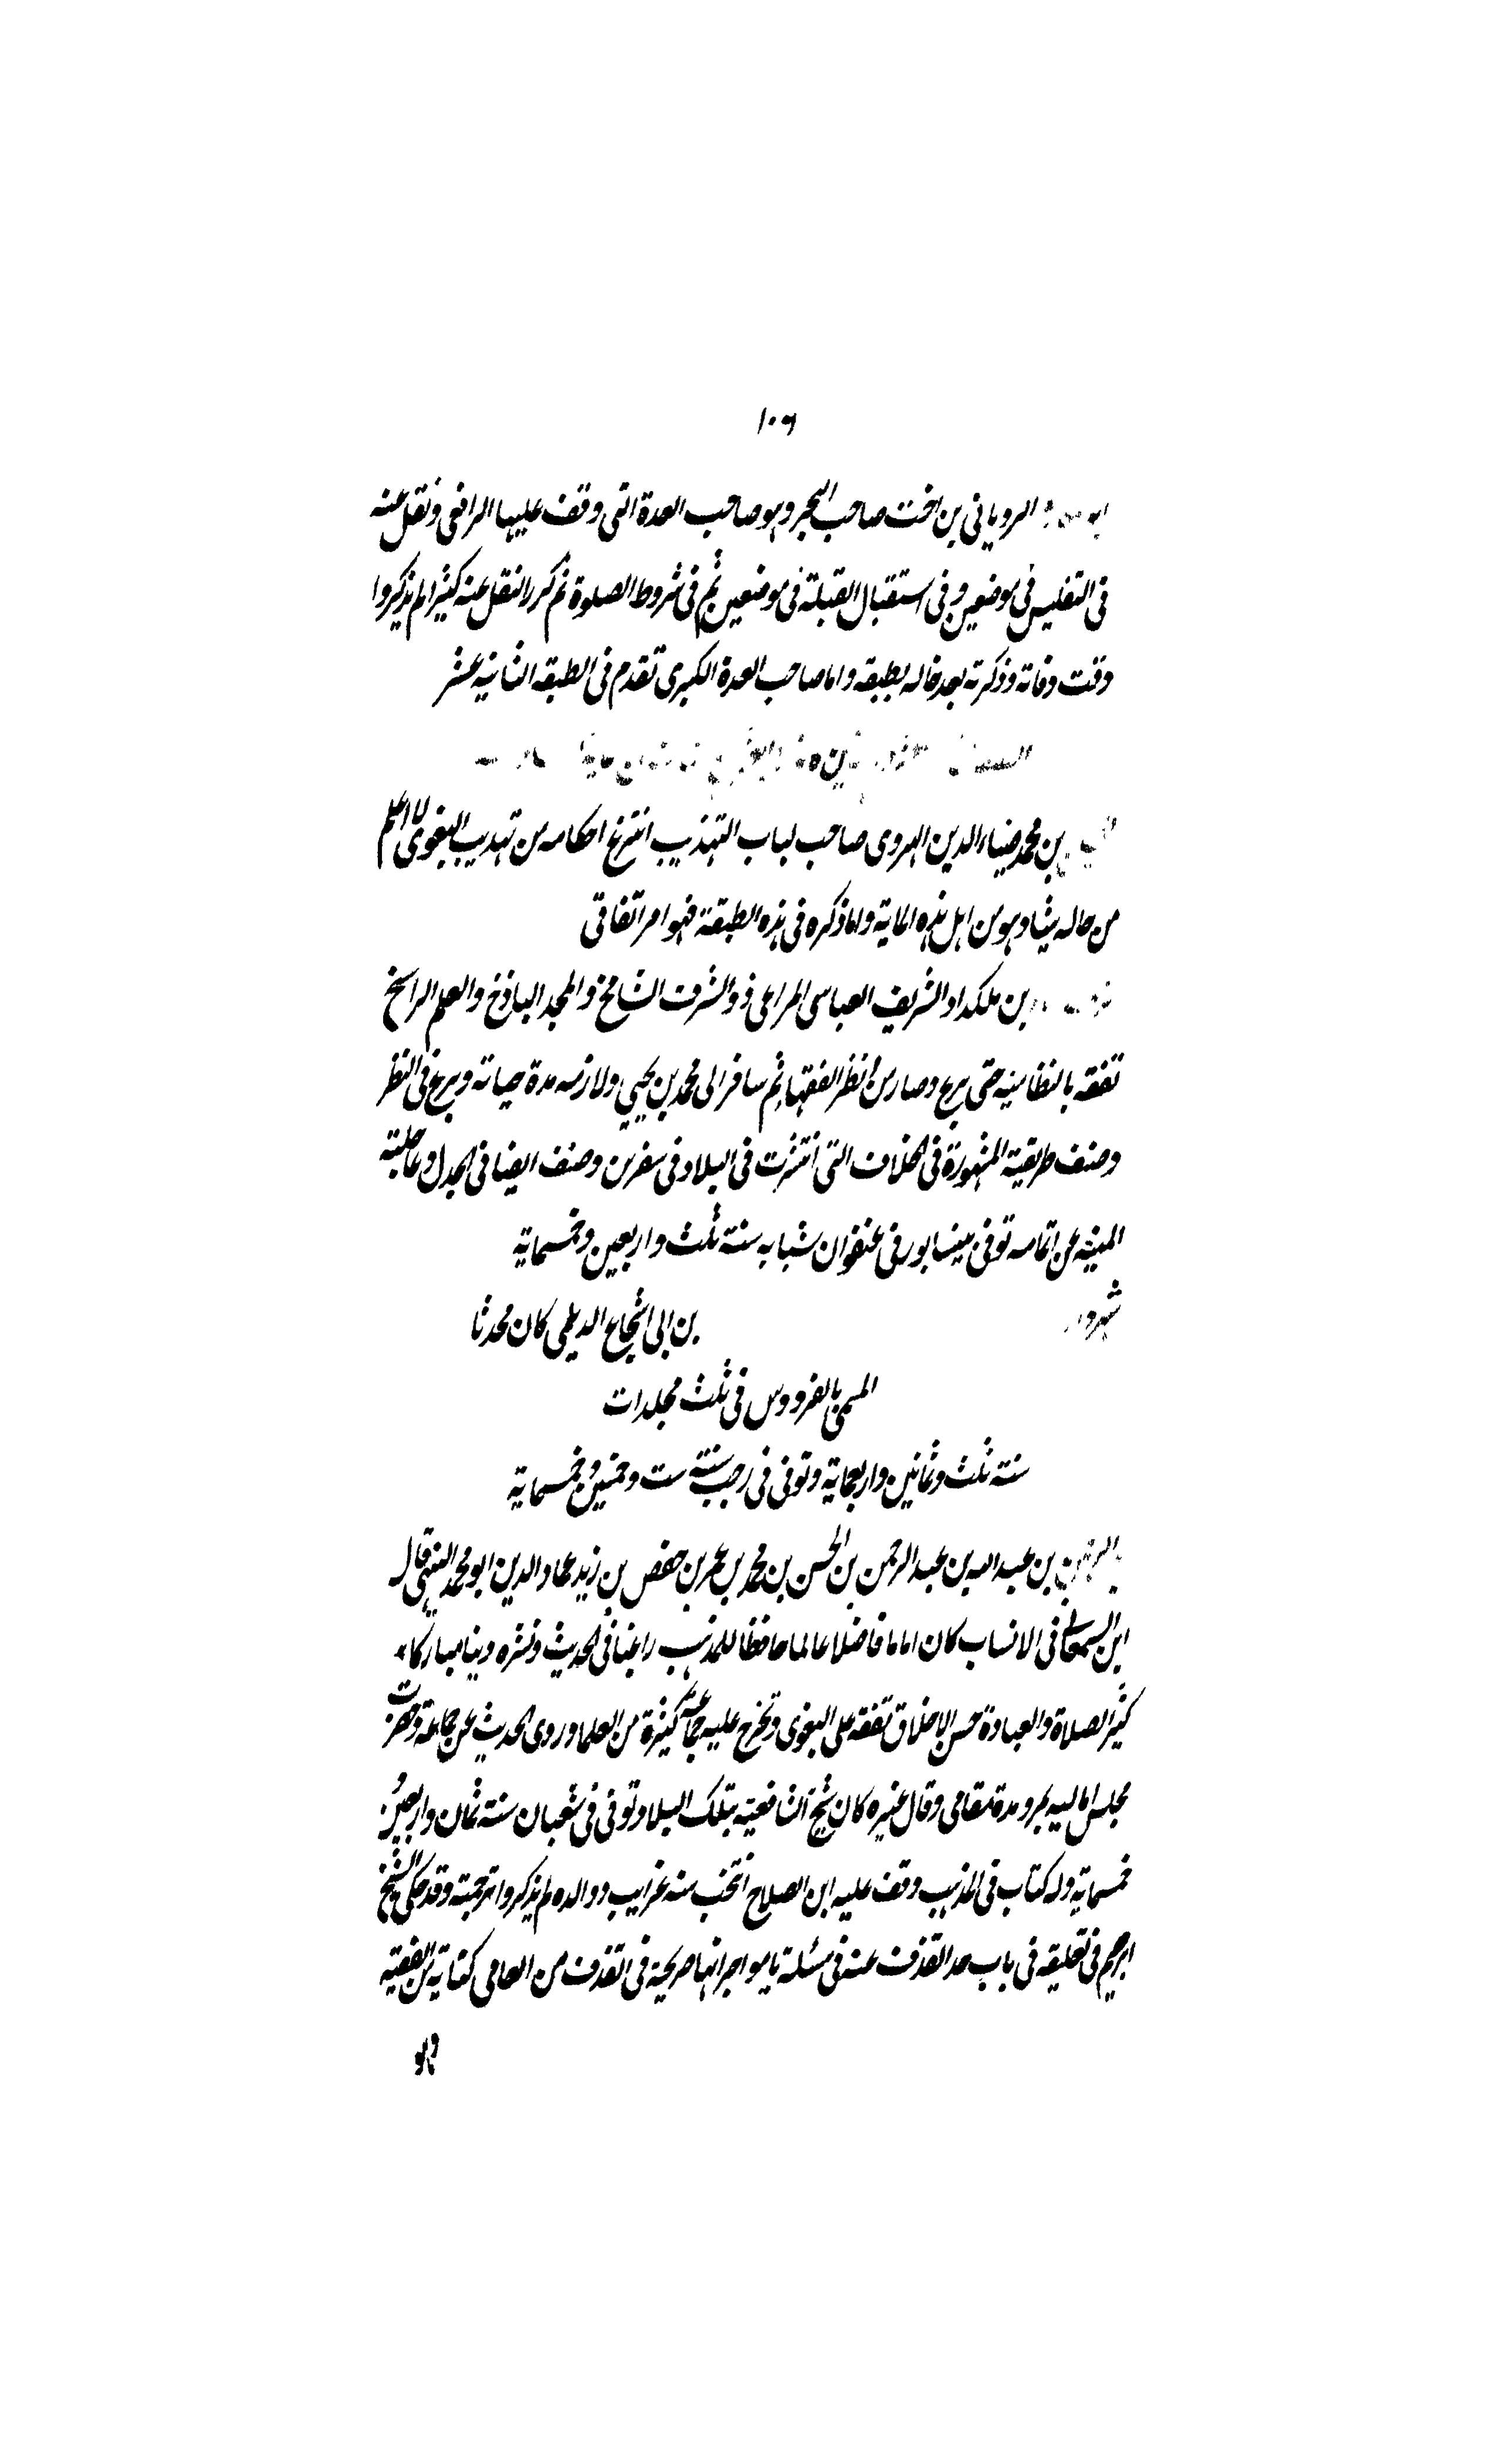 ١٠٦
الرويانى بن اخت صاحب البحر وهو صاحب العدة التى وقف عليها الرافعى ونقل عنه
فى التفليس فى موضعين وفى استقبال القبلة فى موضعين ثم فى شروط الصلوة ثم كرر النقل عنه كثيرا لم يذكروا
وقت وفاته وذكرته بعد خاله بطبقه واما صاحب العدة الكبرى تقدم فى الطبقه الثانيه عشر
بن محمد ضياء الدين الهروى صاحب لباب التهذيب انتزع احكامه من تهذيب البغوى لا اعلم
من حاله شيئا وهو من اهل هذه الماية واما ذكره فى هذه الطبقة فهو امر اتفاقى
بن ملكداد الشريف العباسى المراغى ذو الشرف الشامخ والمجد الباذخ والعلم الراسخ
تفقه بالنظاميه حتى برع وصار من انظر الفقها ثم سافر الى محمد بن يحيى ولازمه مدة حياته وبرع فى النظر
وصنف طريقته المشهورة فى الخلاف التى انتشرت فى البلاد فى سفرين وصنف ايضا فى الجدل وعاجلته
المنيه عن اتمامه توفى بنيسابور فى عنفوان شبابه سنة ثلث واربعين وخمسماية
بن ابى شجاع الديلمى كان محدثا
المسمى بالفردوس فى ثلث مجلدات
سنة ثلث وثمانين واربعماية وتوفى فى رجب سنة ست وخمسين وخمسماية
بن عبد الله بن عبد الرحمن بن الحسن بن محمد بن عمر بن حفص بن زيد عماد الدين ابو محمد النيهى قال
ابن السمعانى فى الانساب كان اماما فاضلا عالما حافظا للمذهب راغبا فى الحديث ونشره دينا مباركا
كثير الصلاة والعبادة حسن الاخلاق تفقه على البغوى وتخرج عليه جماعة كثيرة من العلما وروى الحديث عن جماعة وحضرت
مجلس اماليه بمرو مدة مقامى وقال غيره كان شيخ الشافعيه بتلك البلاد وتوفى فى شعبان سنة ثمان واربعين
خمسماية وله كتاب فى المذهب وقف عليه ابن الصلاح انتخب منه غرايب ووالده لم يذكروا ترجمته وقد حكى الشيخ
ابرهيم فى تعليقه فى باب حد القذف عنه فى مسئلة يا مواجر انها صريحة فى القذف من العامى كناية من الفقيه